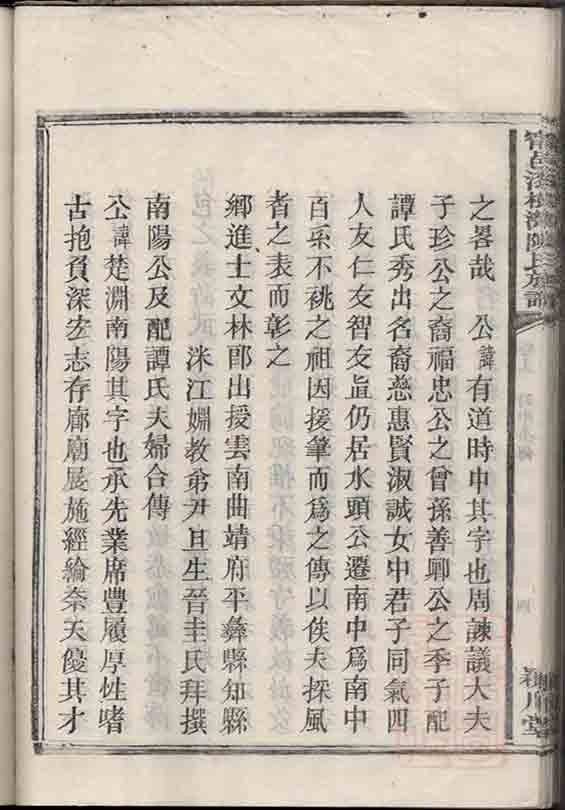 之畧哉　公諱有道時中其字也周諫議大夫
子珍公之裔福忠公之曾孫善卿公之季子配
譚氏秀出名裔慈惠賢淑誠女中君子同氣四
人友仁友智友直仍居水頭公遷南中爲南中
百世不祧之祖因援筆而爲之傳以俟夫採風
者之表而彰之
鄉進士文林郎出授雲南曲靖府平彝縣知縣
洣江姻教弟尹旦生晉圭氏拜撰
南陽公及配譚氏夫婦合傳
公諱楚淵南陽其字也承先業席豊履厚性嗜
古抱負深宏志存廊廟展施經綸奈天優其才
陳氏族譜
四
潁川堂